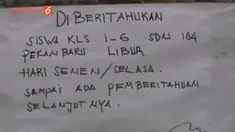 DIBERITAHUKAN
SISWA KLS. 1-6 SDN 184
PEKANBARU LIBUR
HARI SENEN/SELASA.
SAMPAI ADA PEMBERITAHUAN
SELANJUTNYA.